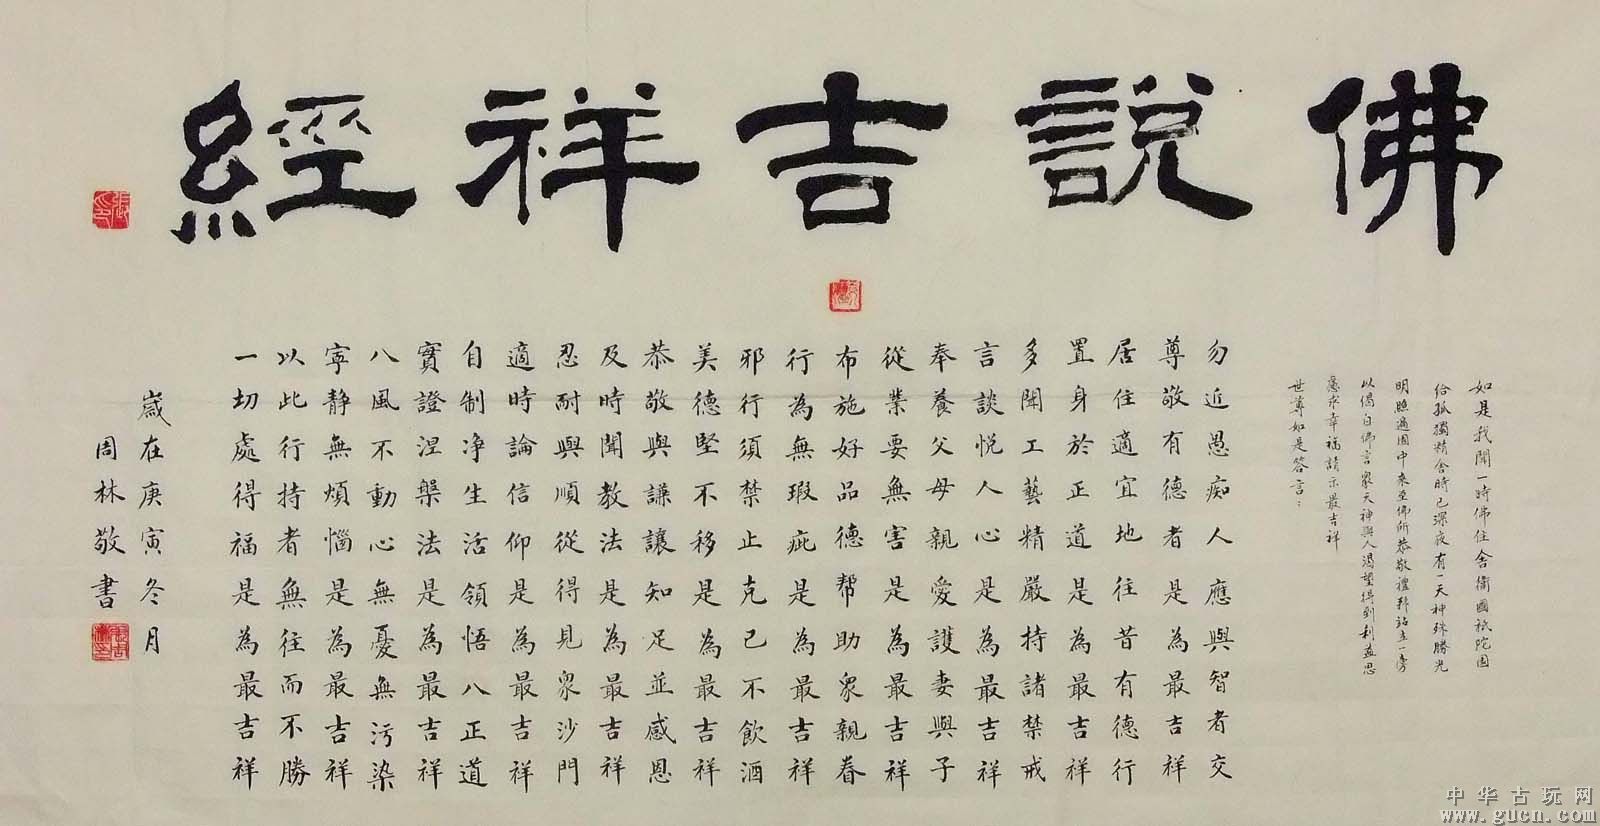 佛說吉祥經
如是我聞一時佛住舍衞國祇陀園
給孤獨精舍時已深夜有一天神殊勝光
明照遍園中來至佛所恭敬禮拜站立一旁
以偈白佛言眾天神與人渴望得到利益思
慮求幸福請示最吉祥
世尊如是答言：
勿近愚痴人應與智者交
尊敬有德者是為最吉祥
居住適宜地往昔有德行
置身於正道是為最吉祥
多聞工藝精嚴持諸禁戒
言談悅人心是為最吉祥
奉養父母親愛護妻與子
從業要無害是為最吉祥
布施好品德帮助眾親眷
行為無瑕疵是為最吉祥
邪行須禁止克己不飲酒
美德堅不移是為最吉祥
恭敬與謙讓知足並感恩
及時聞教法是為最吉祥
忍耐與順從得見眾沙門
適時論信仰是為最吉祥
自制净生活領悟八正道
實證涅槃法是為最吉祥
八風不動心無憂無污染
寧静無煩惱是為最吉祥
以此行持者無往而不勝
一切處得福是為最吉祥
歲在庚寅冬月
周林敬書
中华古玩网
www.gucn.com